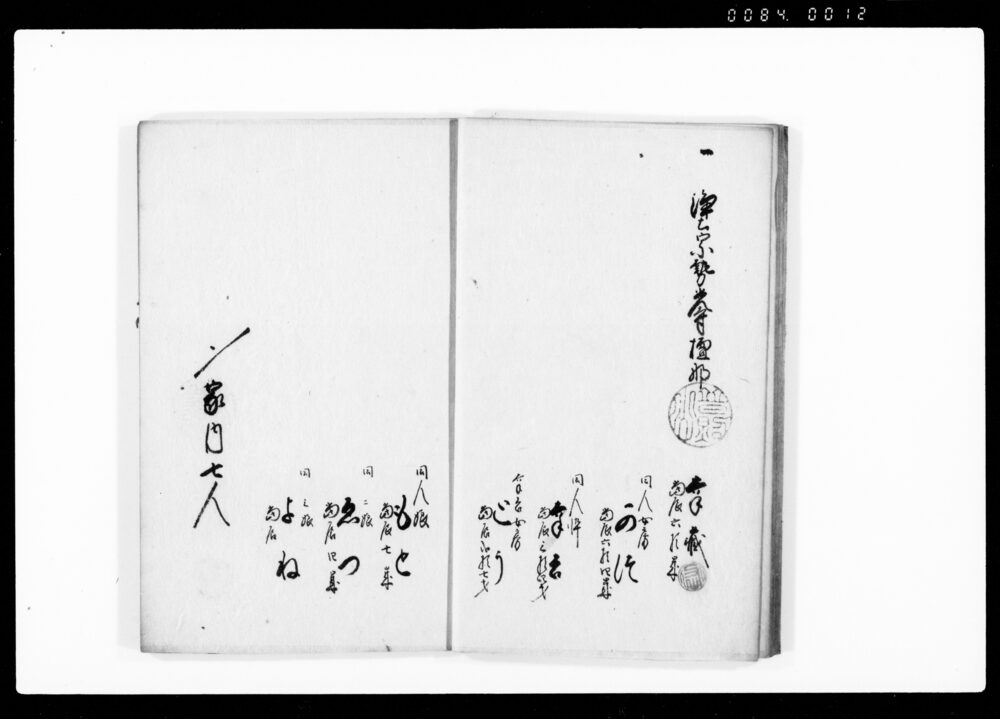 0084. 0012
一
浄土宗勢峯寺檀那
幸蔵
当辰六拾歳
同人女房
当辰六拾四歳
同人忰
幸吉
当辰三拾才
幸吉女房
とう
当辰弐拾七才
同人娘
もと
当辰七歳
同二娘
ゑつ
当辰四歳
同三娘
よね
当辰
〆家内七人